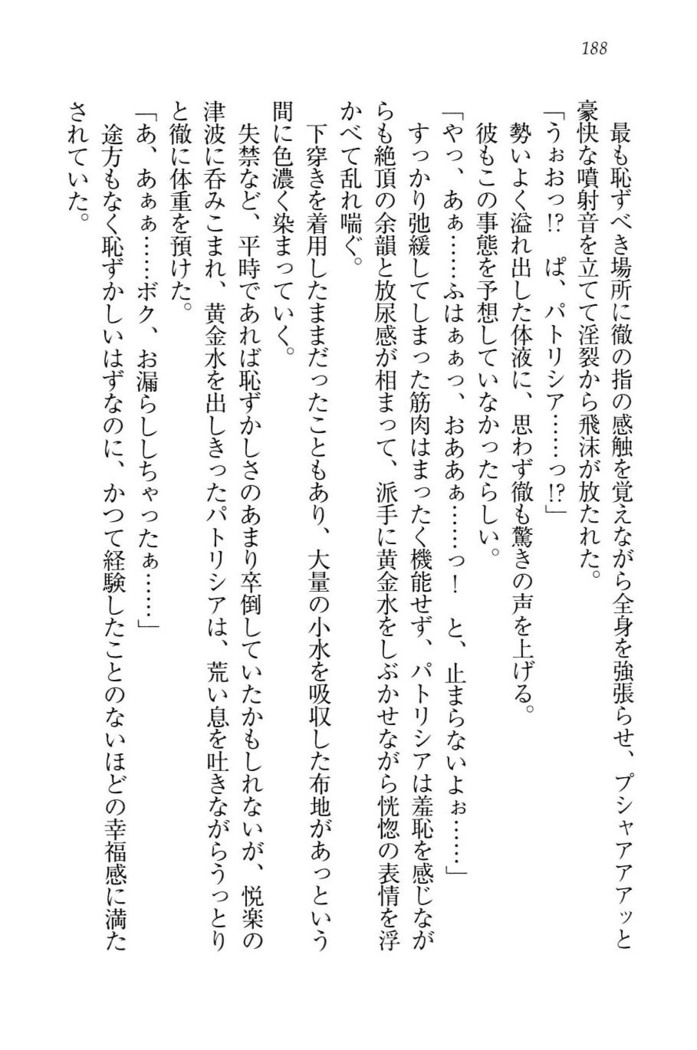 188
最も恥ずべき場所に徹の指の感触を覚えながら全身を強張らせ、プシャアアアッと
豪快な噴射音を立てて淫裂から飛沫が放たれた。
「うぉおっ!?　ぱ、パトリシア……っ!?」
勢いよく溢れ出した体液に、思わず徹も驚きの声を上げる。
彼もこの事態を予想していなかったらしい。
「やっ、あぁ……ふはぁぁっ、おああぁ……っ！　と、止まらないよぉ……」
すっかり弛緩してしまった筋肉はまったく機能せず、パトリシアは羞恥を感じなが
らも絶頂の余韻と放尿感が相まって、派手に黄金水をしぶかせながら恍惚の表情を浮
かべて乱れ喘ぐ。
下穿きを着用したままだったこともあり、大量の小水を吸収した布地があっという
間に色濃く染まっていく。
失禁など、平時であれば恥ずかしさのあまり卒倒していたかもしれないが、悦楽の
津波に呑みこまれ、黄金水を出しきったパトリシアは、荒い息を吐きながらうっとり
と徹に体重を預けた。
「あ、あぁぁ……ボク、お漏らししちゃったぁ……」
途方もなく恥ずかしいはずなのに、かつて経験したことのないほどの幸福感に満た
されていた。